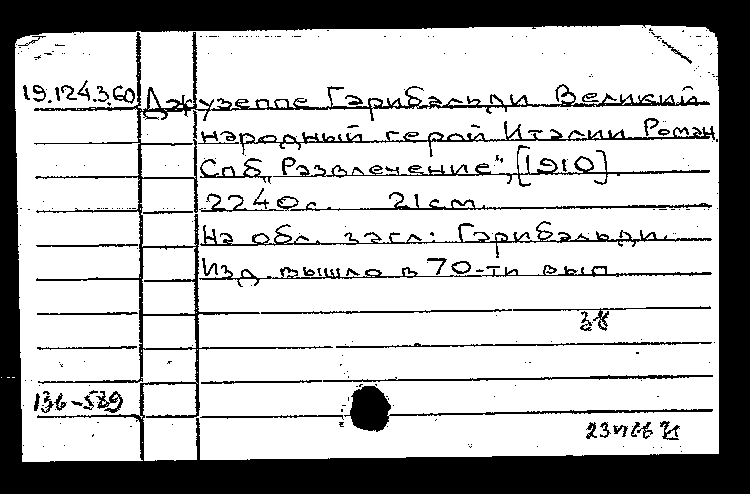 19.124.3.60 Джузеппе Гарибальди Великий
народный герой Италии Роман.
Спб „Развлечение", [1910].
2240с. 21см.
На обл. загл: Гарибальди.
Изд. вышло в 70-ти вып.
38
136-589